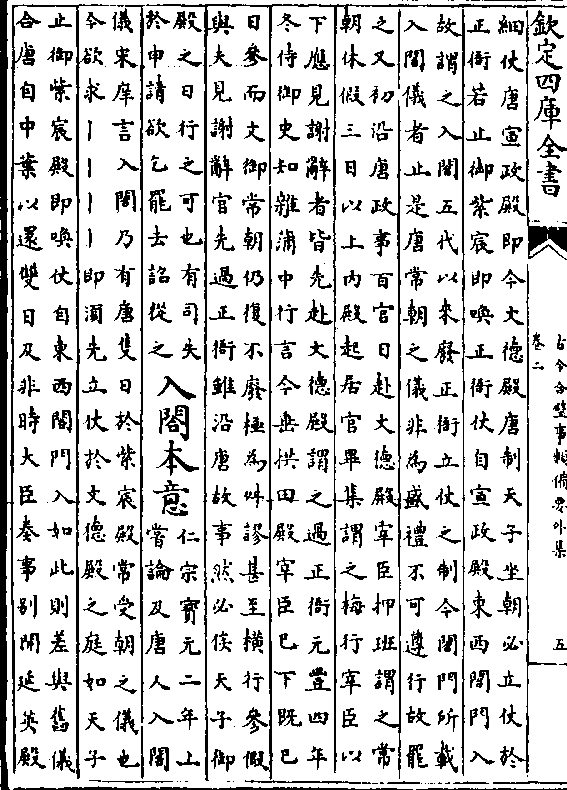 欽定四庫全書
古今合璧事類備要外集
卷二
五
細仗唐宣政殿即今大德殿唐制天子坐朝必立仗於
正衙若止御紫宸即喚正衙仗自宣政殿東西閤門入
故謂之入閤五代以來廢正衙立仗之制今閤門所載
入閤儀者止是唐常朝之儀非為盛禮不可遵行故罷
之又初沿唐政事百官日赴文德殿宰臣押班謂之常
朝休假三日以上內殿起居官畢集謂之橫行宰臣以
下應見謝辭者皆先赴文德殿謂之過正衙元豐四年
冬侍御史知雜滿中行言今垂拱田殿宰臣已下既已
日參而文御常朝仍復不廢極為舛謬甚至橫行參假
與夫見謝辭官先過正衙雖沿唐故事然必俟天子御
殿之日行之可也有司失
於申請欲乞罷去詔從之
入閤本意
仁宗寶元二年上
嘗論及唐人入閤
儀宋庠言入閤乃有唐隻日於紫宸殿常受朝之儀也
今欲求丨丨丨丨即須先立仗於文德殿之庭如天子
止御紫宸殿即喚仗自東西閤門入如此則差與舊儀
合唐自中葉以還雙日及非時大臣奏事别開延英殿